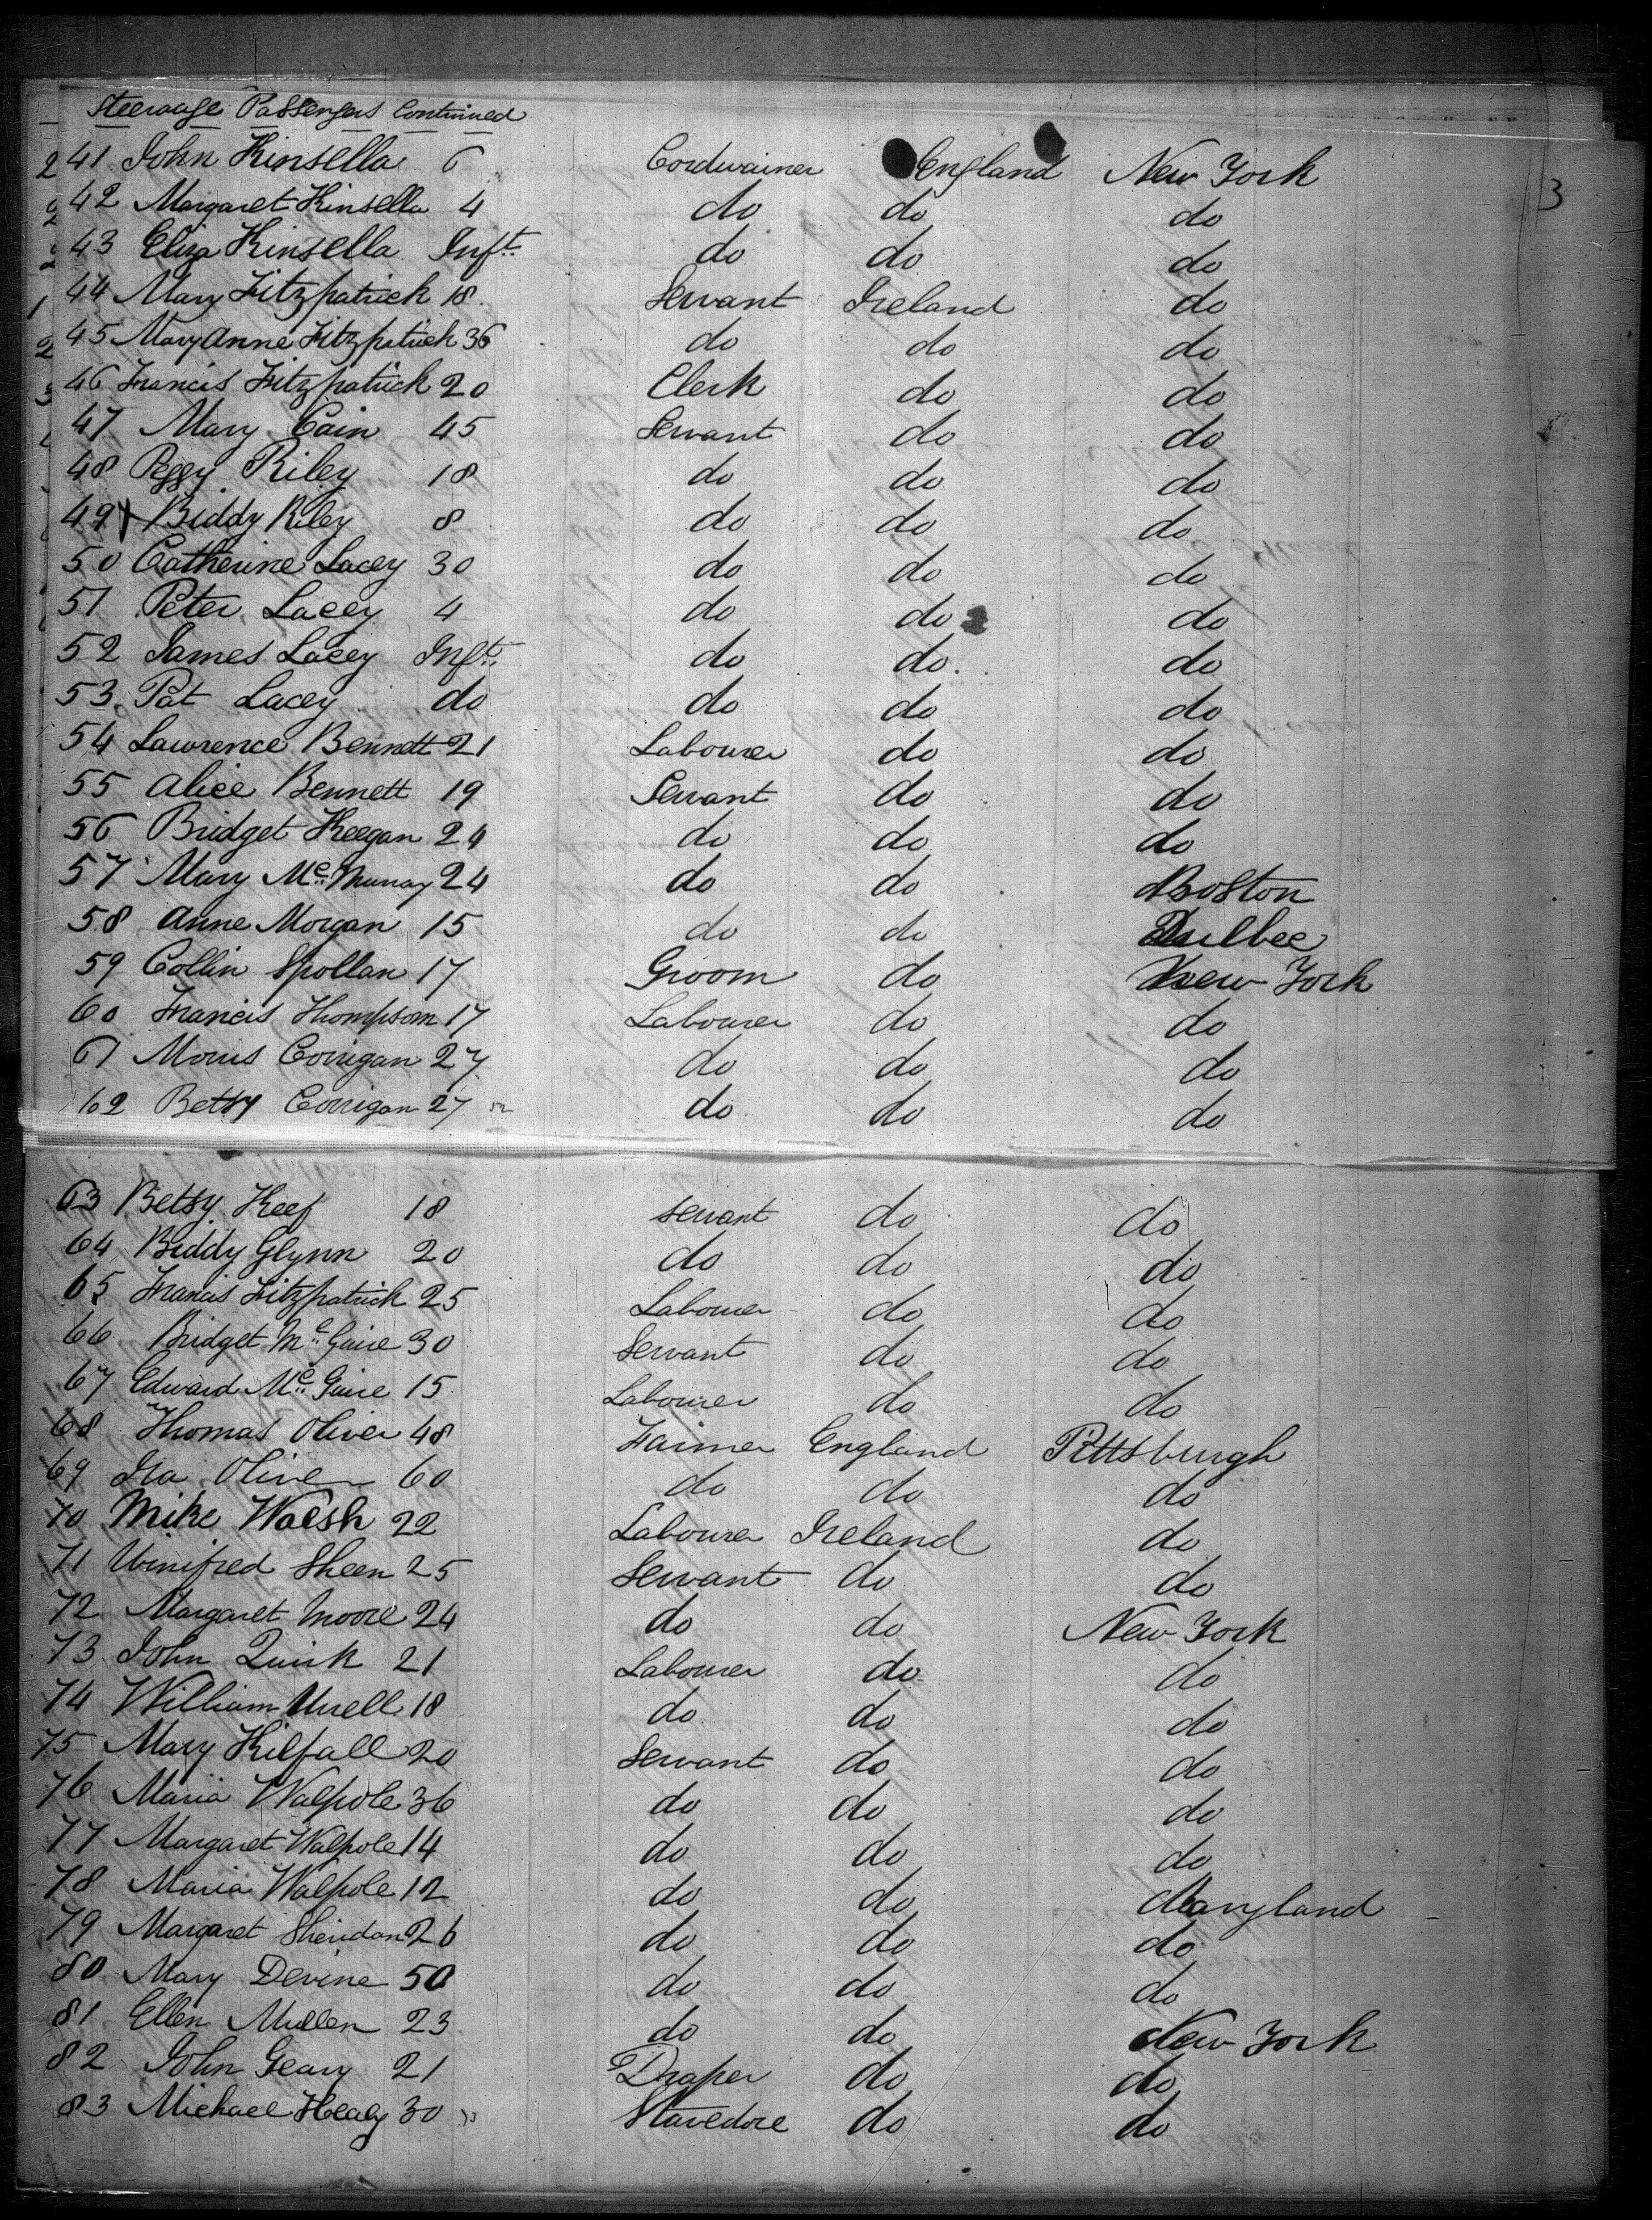 Steerage Passengers Continued
3
41 John Kinsella 6 Cordwainer England New York
42 Margaret Kinsella 4 do do do
43 Eliza Kinsella Inft do do do
44 Mary Fitzpatrick 18 Servant Ireland do
45 Mary Anne Fitzpatrick 36 do do do
46 Francis Fitzpatrick 20 Clerk do do
47 Mary Cain 45 Servant do do
48 Peggy Riley 18 do do do
49 Biddy Riley 8 do do do
50 Catherine Lacey 30 do do do
51 Peter Lacey 4 do do do
52 James Lacey Inft do do do
53 Pat Lacey do do do do
54 Lawrence Bennett 21 Labourer do do
55 Alice Bennett 19 Servant do do
56 Bridget Keegan 24 do do do
57 Mary Mc Murray 24 do do Boston
58 Anne Morgan 15 do do
59 Collin Spollan 17 Groom do New York
60 Francis Thompson 17 Labourer do do
61 Morris Corrigan 27 do do do
62 Betsy Corrigan 27 do do do
63 Betsy Keef 18 servant do do
64 Biddy Glynn 20 do do do
65 Francis Fitzpatrick 25 Labourer do do
66 Bridget Mc Guire 30 Servant do do
67 Edward Mc Guire 15 Labourer do do
68 Thomas Oliver 48 Farmer England Pittsburgh
69 Isa Oliver 60 do do do
70 Mike Walsh 22 Labourer Ireland do
71 Winifred Sheen 25 Servant do do
72 Margaret Moore 24 do do New York
73 John Quirk 21 Labourer do do
74 William Urell 18 do do do
75 Mary Kilfall 20 Servant do do
76 Maria Walpole 36 do do do
77 Margaret Walpole 14 do do do
78 Maria Walpole 12 do do Maryland
79 Margaret Sheridan 26 do do do
80 Mary Devine 50 do do do
81 Ellen Mullen 23 do do New York
82 John Geary 21 Draper do do
83 Michael Healy 30 Stavedore do do